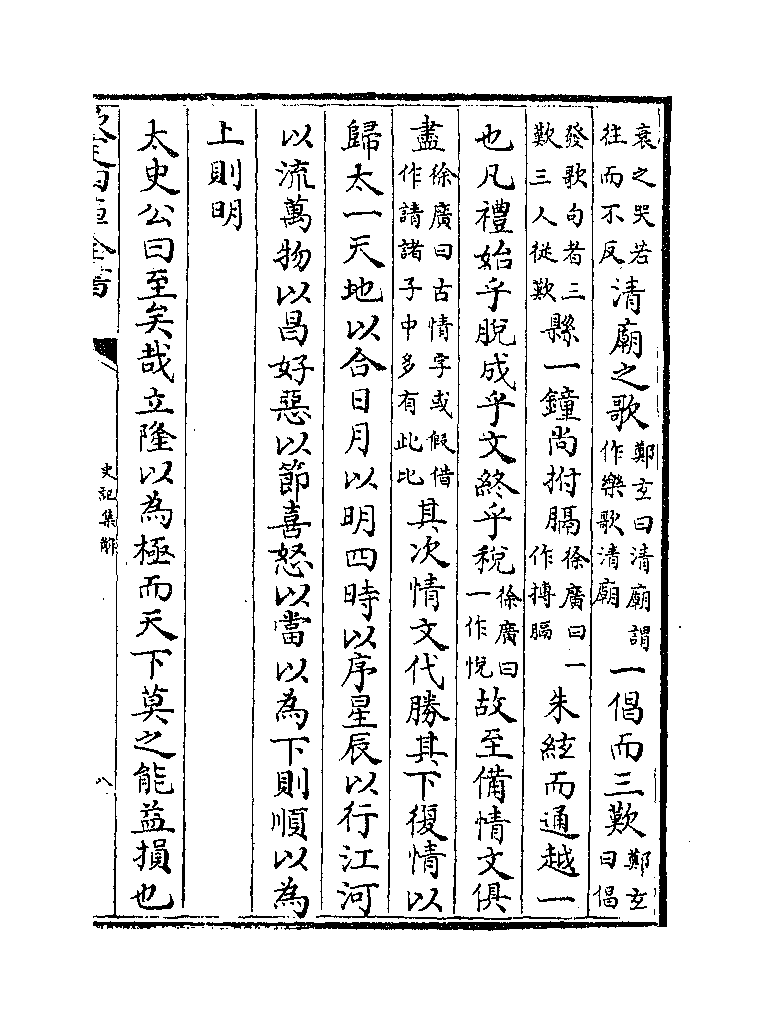 衰之哭若往而不反清廟之歌鄭玄曰清廟謂作樂歌清廟一倡而三歎鄭玄曰倡
發歌句者三歎三人從歎縣一鐘尚拊膈徐廣曰一作搏膈朱絃而通越一
也凡禮始乎脫成乎文終乎稅徐廣曰一作悅故至備情文俱
盡徐廣曰古情字或假借作請諸子中多有此比其次情文代勝其下復情以
歸太一天地以合日月以明四時以序星辰以行江河
以流萬物以昌好惡以節喜怒以當以為下則順以為
上則明
太史公曰至矣哉立隆以為極而天下莫之能益損也
欽定四庫全書
史記集解
八